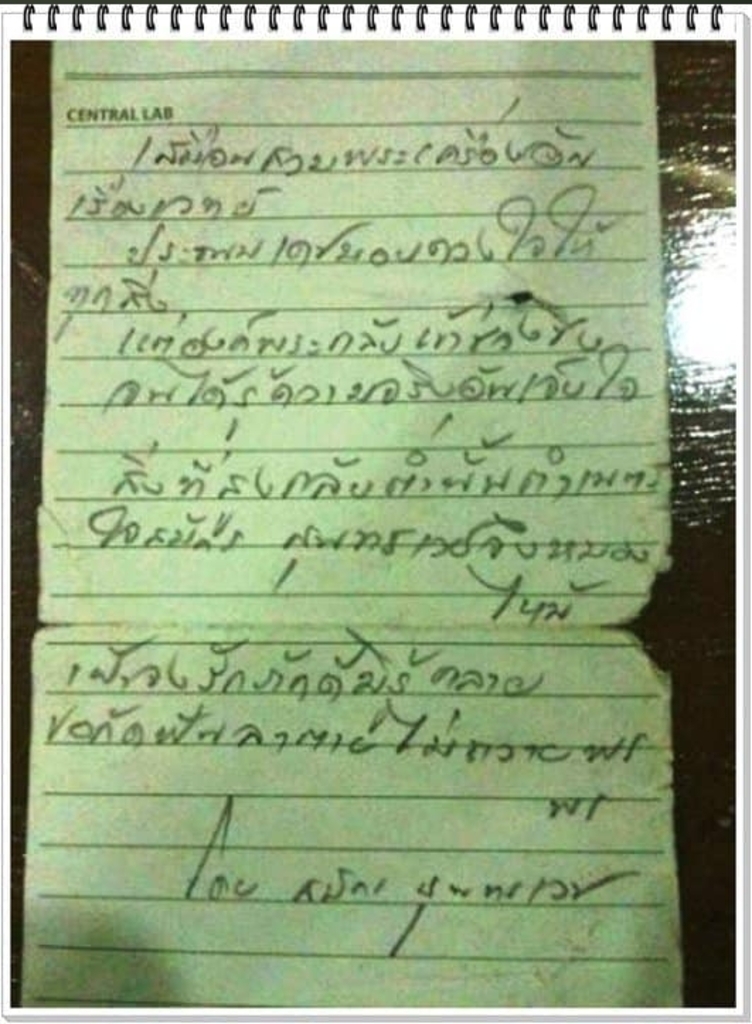 CENTRAL LAB
เสมือนสวมพระเครื่องอัน
เรืองเวทย์
ประณมเดชมอบดวงใจให้
ทุกสิ่ง
แต่องค์พระกลับ
จนได้รู้ความจริงอันเจ็บใจ
สิ่งที่ กลับต่ำ
ใจสมัคร สุนทรเวชจึงหมอง
ไหม้
เฝ้าจงรักภักดีมิรู้คลาย
ขอกัดฟันลาตายไม่ถวายพร
พร
โดย สมัคร สุนทรเวช